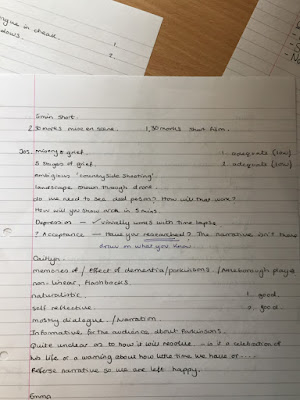 tongue in cheek.
1.
2.
5min short.
2, 30 marks mise en scene. 1, 30 marks short film.
Jas. missing & grief. 1 adequate (low)
5 stages of grief. 2 adequate (low)
ambigious 'countryside shooting'
landscape shown through drone.
do we need to see dead person? How will that work?
How will you show arch in 5 mins.
Depression - ✓ visually works with time lapse
? Acceptance - Have you researched? The narrative isn't there
draw on what you know
Caitlyn.
memories of / effect of dementia/parkinsons /
non-linear, flashbacks.
naturalistic. 1. good.
self reflective. 2. good
mostly dialogue / Narration.
Informative for the audience about Parkinsons.
Quite unclear as to how it will resolve - is it a celebration of
his life or a warning about how little time we have or ....
Reverse narrative so we are left happy.
Emma